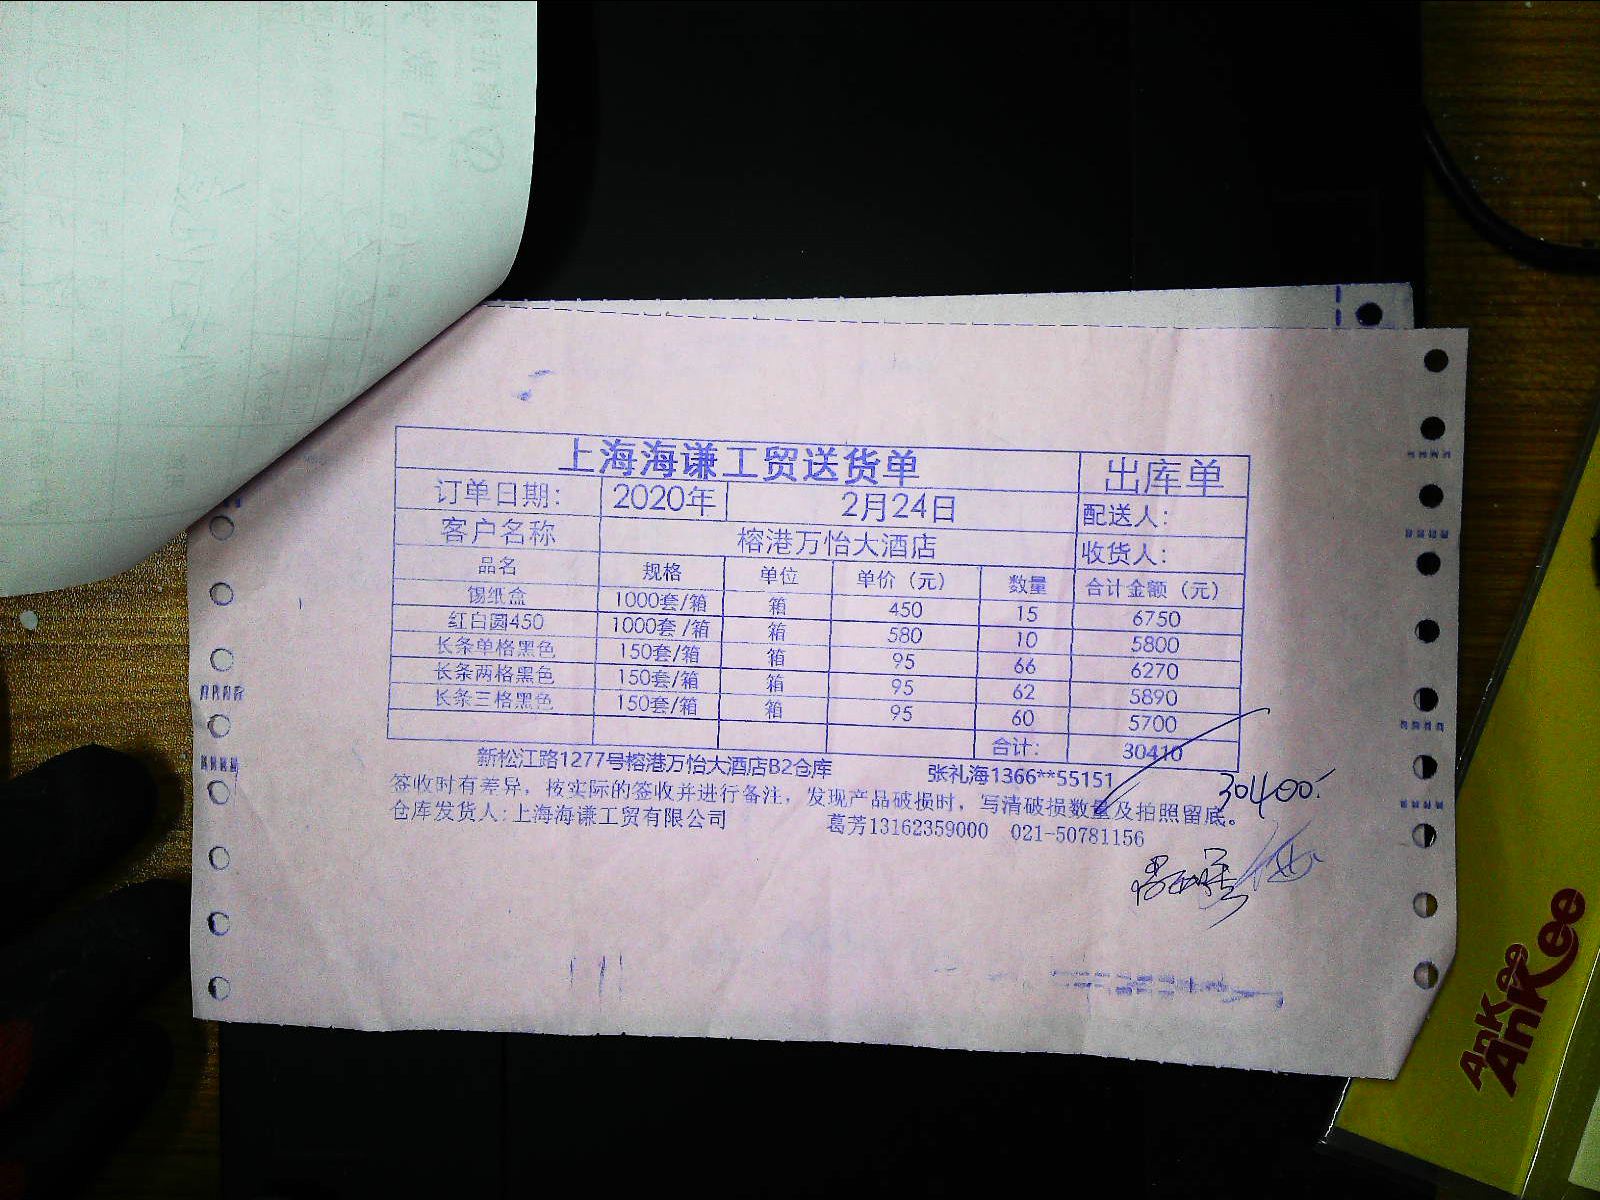 上海海谦工贸送货单 出库单
订单日期： 2020年 2月24日 配送人：
客户名称 榕港万怡大酒店 收货人：
品名 规格 单位 单价（元） 数量 合计金额（元）
锡纸盒 1000套/箱 箱 450 15 6750
红白圆450 1000套/箱 箱 580 10 5800
长条单格黑色 150套/箱 箱 95 66 6270
长条两格黑色 150套/箱 箱 95 62 5890
长条三格黑色 150套/箱 箱 95 60 5700
合计： 30410
新松江路1277号榕港万怡大酒店B2仓库 张礼海1366**55151
30400.
签收时有差异，按实际的签收并进行备注，发现产品破损时，写清破损数量及拍照留底。
仓库发货人：上海海谦工贸有限公司 葛芳13162359000 021-50781156
AnKee
AnKee